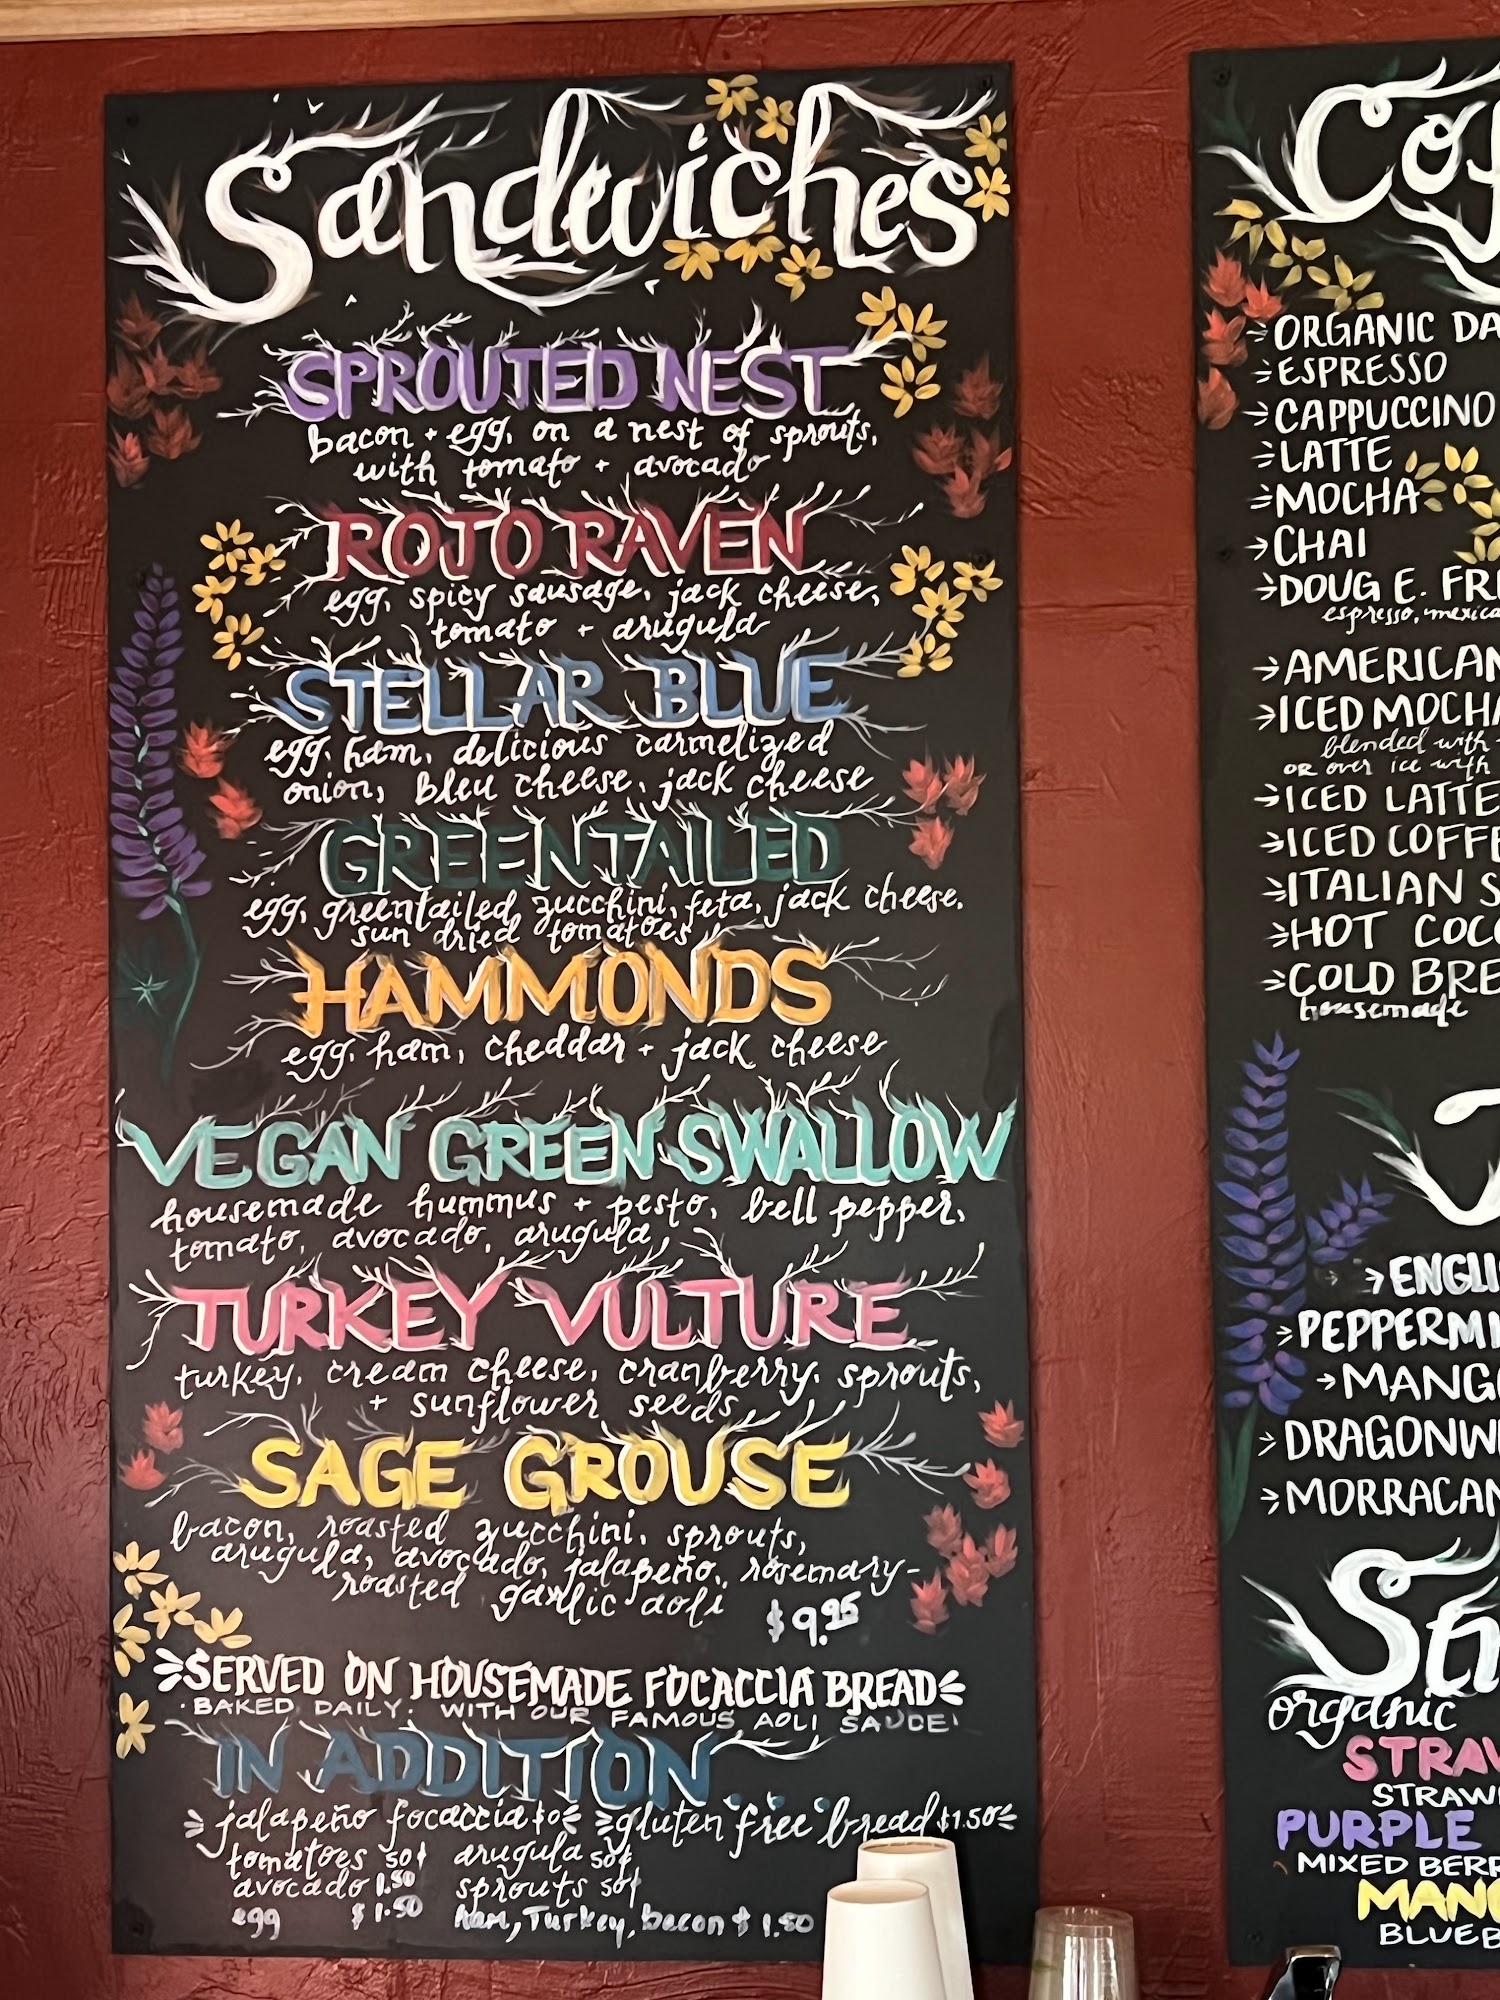 Sandwiches
SPROUTED NEST
bacon + egg, on a nest of sprouts,
with tomato + avocado
ROJO RAVEN
egg, spicy sausage, jack cheese,
tomato + arugula
STELLAR BLUE
egg, ham, delicious carmelized
onion, bleu cheese, jack cheese
GREENTAILED
egg, greentailed zucchini, feta, jack cheese,
sun dried tomatoes
HAMMONDS
egg, ham, cheddar + jack cheese
VEGAN GREEN SWALLOW
housemade hummus + pesto, bell pepper,
tomato, avocado, arugula
TURKEY VULTURE
turkey, cream cheese, cranberry, sprouts,
+ sunflower seeds
SAGE GROUSE
bacon, roasted zucchini, sprouts,
arugula, avocado, jalapeño, rosemary-
roasted garlic aoli
$9.95
SERVED ON HOUSEMADE FOCACCIA BREAD
·BAKED DAILY. WITH OUR FAMOUS AOLI SAUCE!
IN ADDITION...
jalapeño focaccia $0 gluten free bread $1.50
tomatoes 50¢ arugula 50¢
avocado 1.50 sprouts 50¢
egg $1.50 ham, Turkey, bacon $1.50
Cof
→ORGANIC DA
→ESPRESSO
→CAPPUCCINO
→LATTE
→MOCHA
→CHAI
→DOUG E. FRE
espresso, mexica
→AMERICAN
→ICED MOCHA
blended with
OR over ice with
→ICED LATTE
→ICED COFFE
→ITALIAN S
→HOT COCO
→COLD BRE
housemade
T
→ENGLI
→PEPPERMI
→MANGO
→DRAGONW
→MORRACAN
organic
STRAW
STRAW
PURPLE
MIXED BERR
MANG
BLUEB